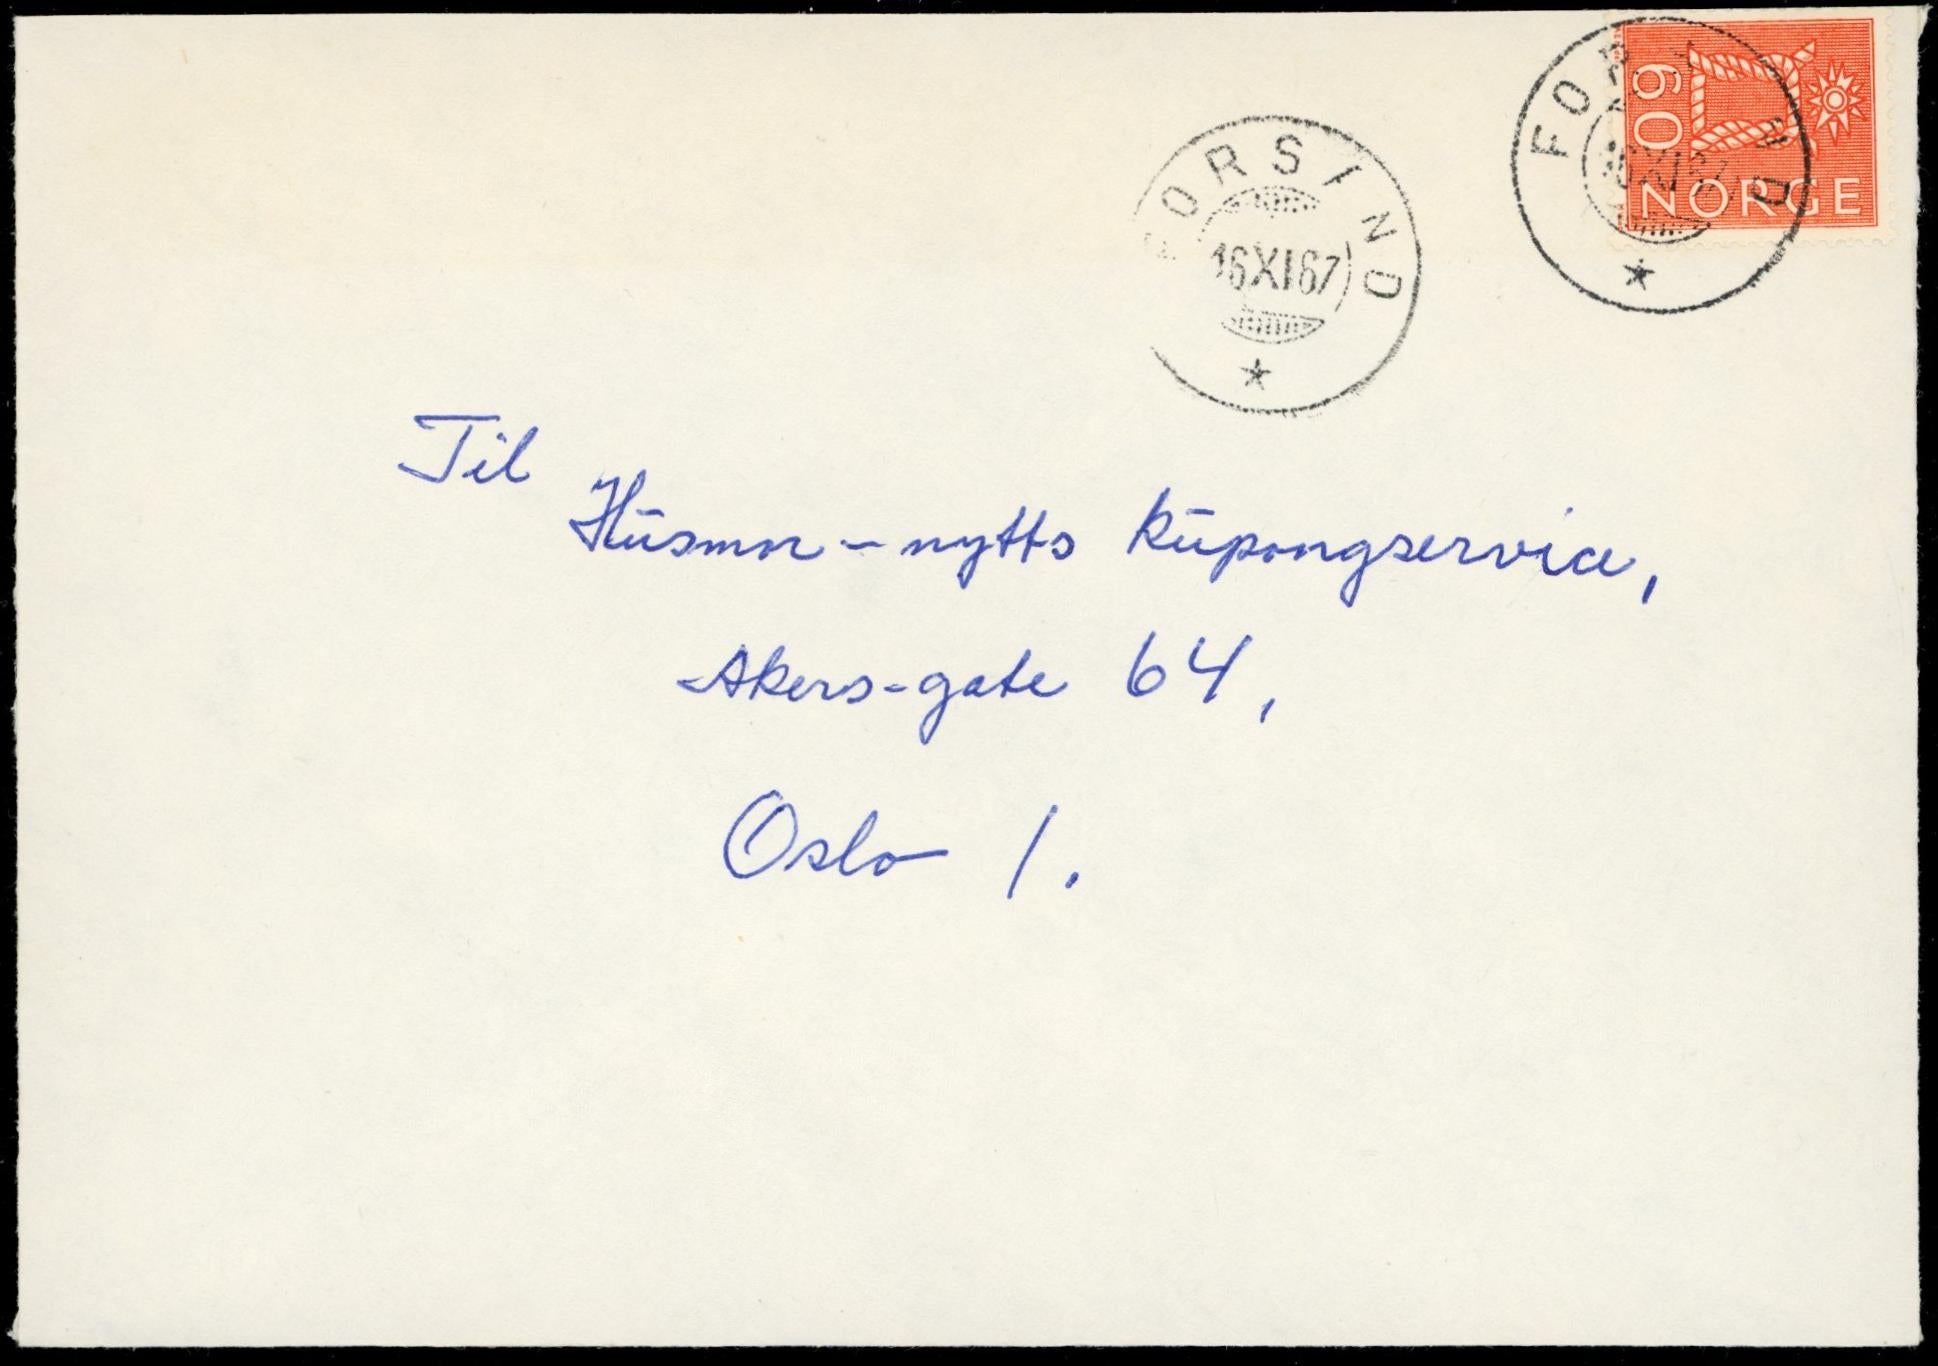 FORSIND
16XI67
60
NORGE
Til
Husmor-nytts kupongservice,
Akers-gate 64,
Oslo 1.